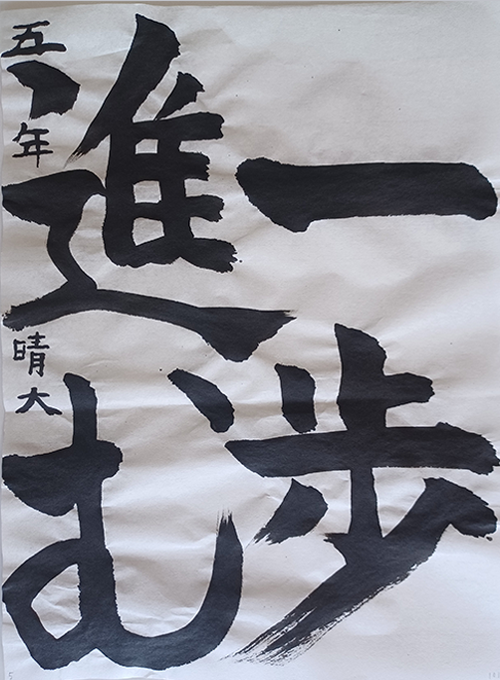 一歩
進む
五年 晴大